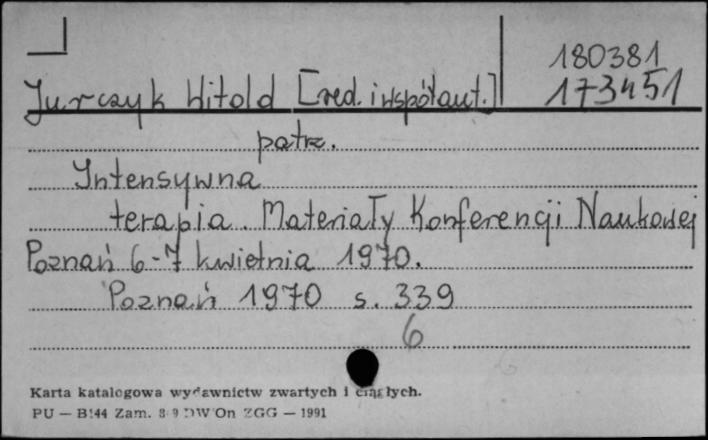 180381
Jurczyk Witold [red. i współaut.] 173451
patrz.
Intensywna
terapia. Materiały Konferencji Naukowej
Poznań 6-7 kwietnia 1970.
Poznań 1970 s. 339
6
Karta katalogowa wydawnictw zwartych i ciągłych.
PU — B144 Zam. DW On ZGG — 1991